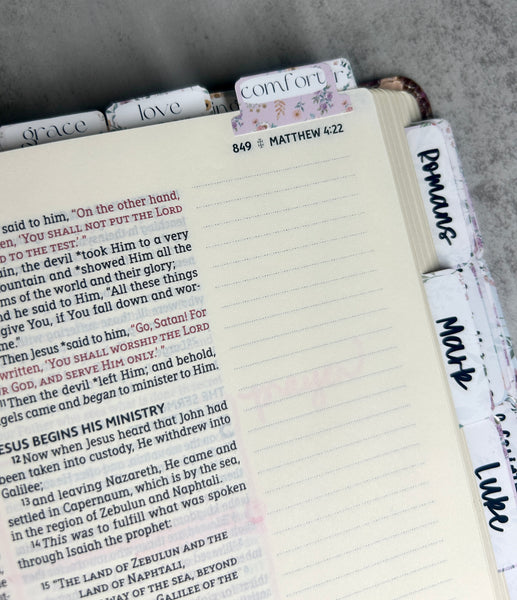 grace
love
comfort
849 MATTHEW 4:22
said to him, "On the other hand,
'YOU SHALL NOT PUT THE LORD
TO THE TEST.'"
the devil *took Him to a very
and *showed Him all the
of the world and their glory;
he said to Him, "All these things
give You, if You fall down and wor-
Then Jesus *said to him, "Go, Satan! For
written, 'YOU SHALL WORSHIP THE LORD
GOD, AND SERVE HIM ONLY.'"
11 Then the devil *left Him; and behold,
came and began to minister to Him.
JESUS BEGINS HIS MINISTRY
12 Now when Jesus heard that John had
been taken into custody, He withdrew into
Galilee;
13 and leaving Nazareth, He came and
settled in Capernaum, which is by the sea,
in the region of Zebulun and Naphtali.
14 This was to fulfill what was spoken
through Isaiah the prophet:
15 "THE LAND OF ZEBULUN AND THE
LAND OF NAPHTALI,
WAY OF THE SEA, BEYOND
GALILEE OF THE
Romans
Mark
Luke